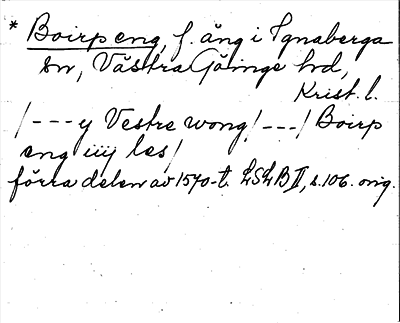 * Boirp eng, f. äng i Ignaberga
sn, Västra Göinge hd,
Krist. l.
/---y Vestre wong/---/Boirp
eng iiij les/
förra delen av 1570-t. LSLB II, s. 106. orig.